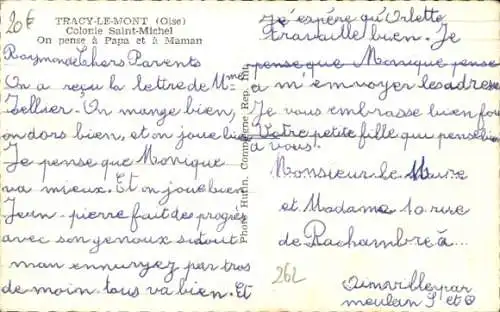 20€
TRACY-LE-MONT (Oise)
Colonie Saint-Michel
On pense à Papa et à Maman
Raymonde Chers Parents
On a reçu la lettre de Mme
Tellier. On mange bien,
on dors bien, et on joue bien
Je pense que Monique
va mieux. Et on joue bien
Jean-pierre fait des progrès
avec son genoux
man ennuyez par tros
de moin tous va bien. Et
Photo Hutin, Compiègne, Rep. Int.
J'espère qu'Orlette
travaille bien. Je
pense que Monique pense
a m'envoyer les adres
Je vous embrasse bien for
Votre petite fille qui pense bien
à vous.
Monsieur le
et Madame 10 rue
de Rachambre à...
262
par
meulan S et O